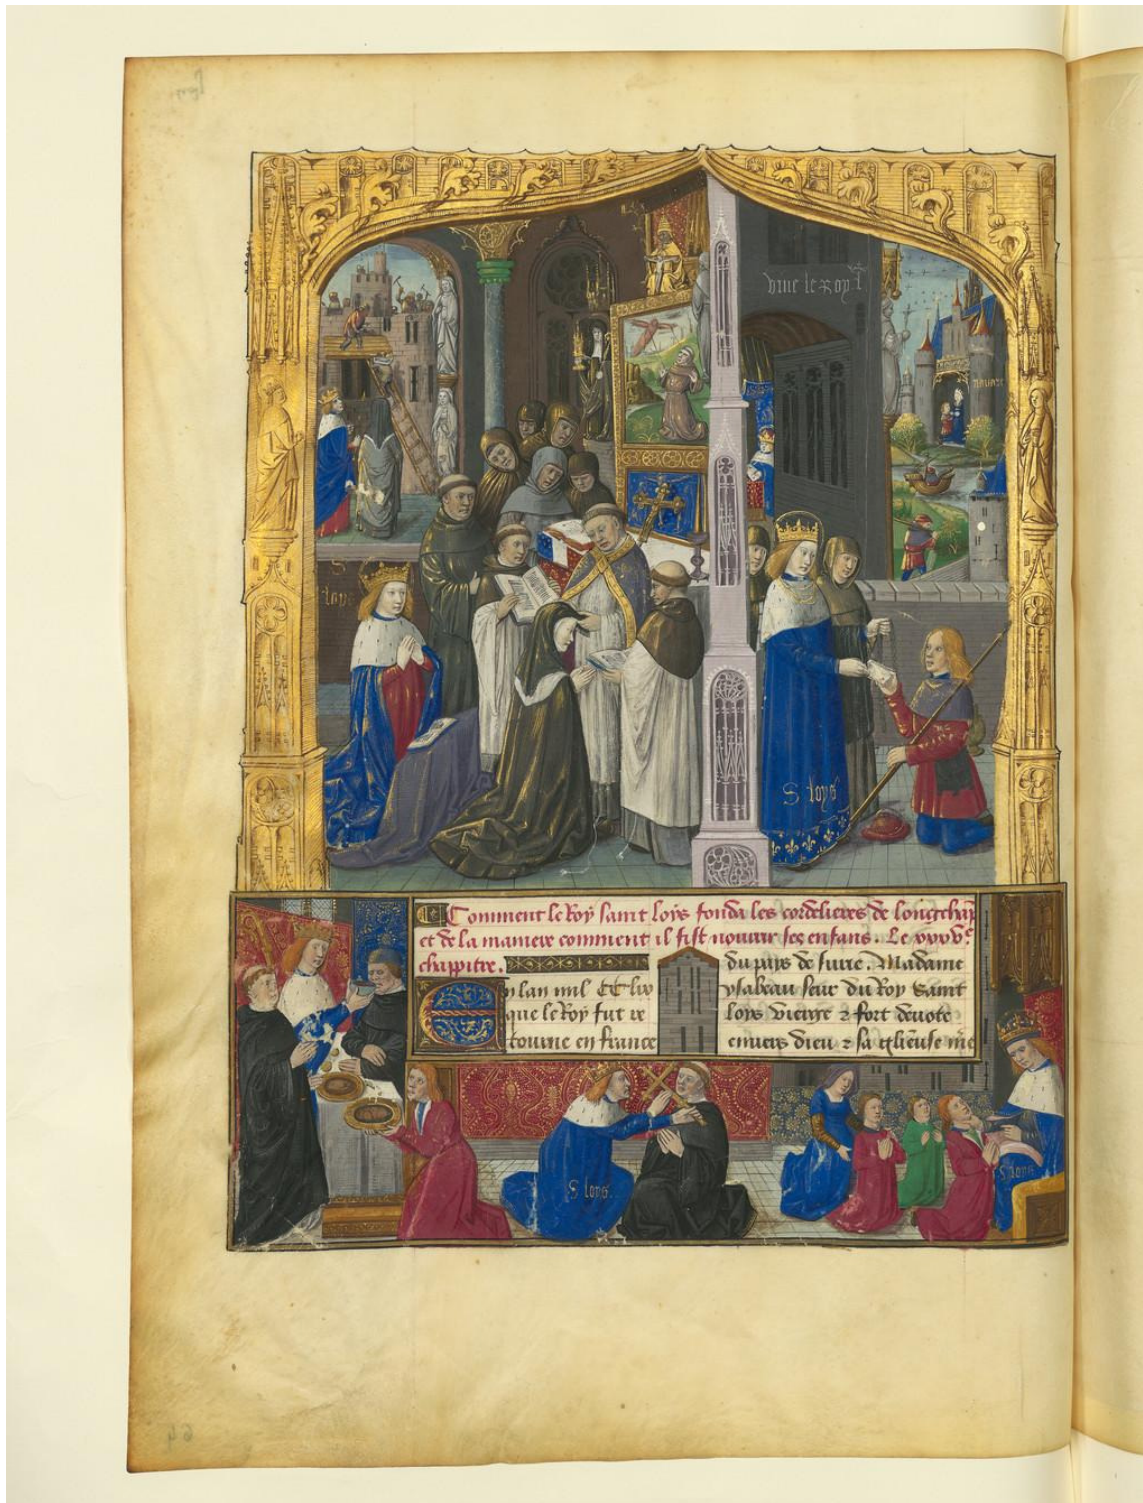 vive le Roy
S
loys
S loys
Comment le Roy saint loys fonda les cordelieres de longchap
et de la maniere comment il fist nourrir ses enfans. Le xxxv.e
chappitre.
En lan mil CC liiii
que le Roy fut re
tourne en france
du pays de surie. Madame
ysabeau seur du Roy saint
loys vierge z fort devote
envers dieu z sa glieuse me
S loys
S loys
64